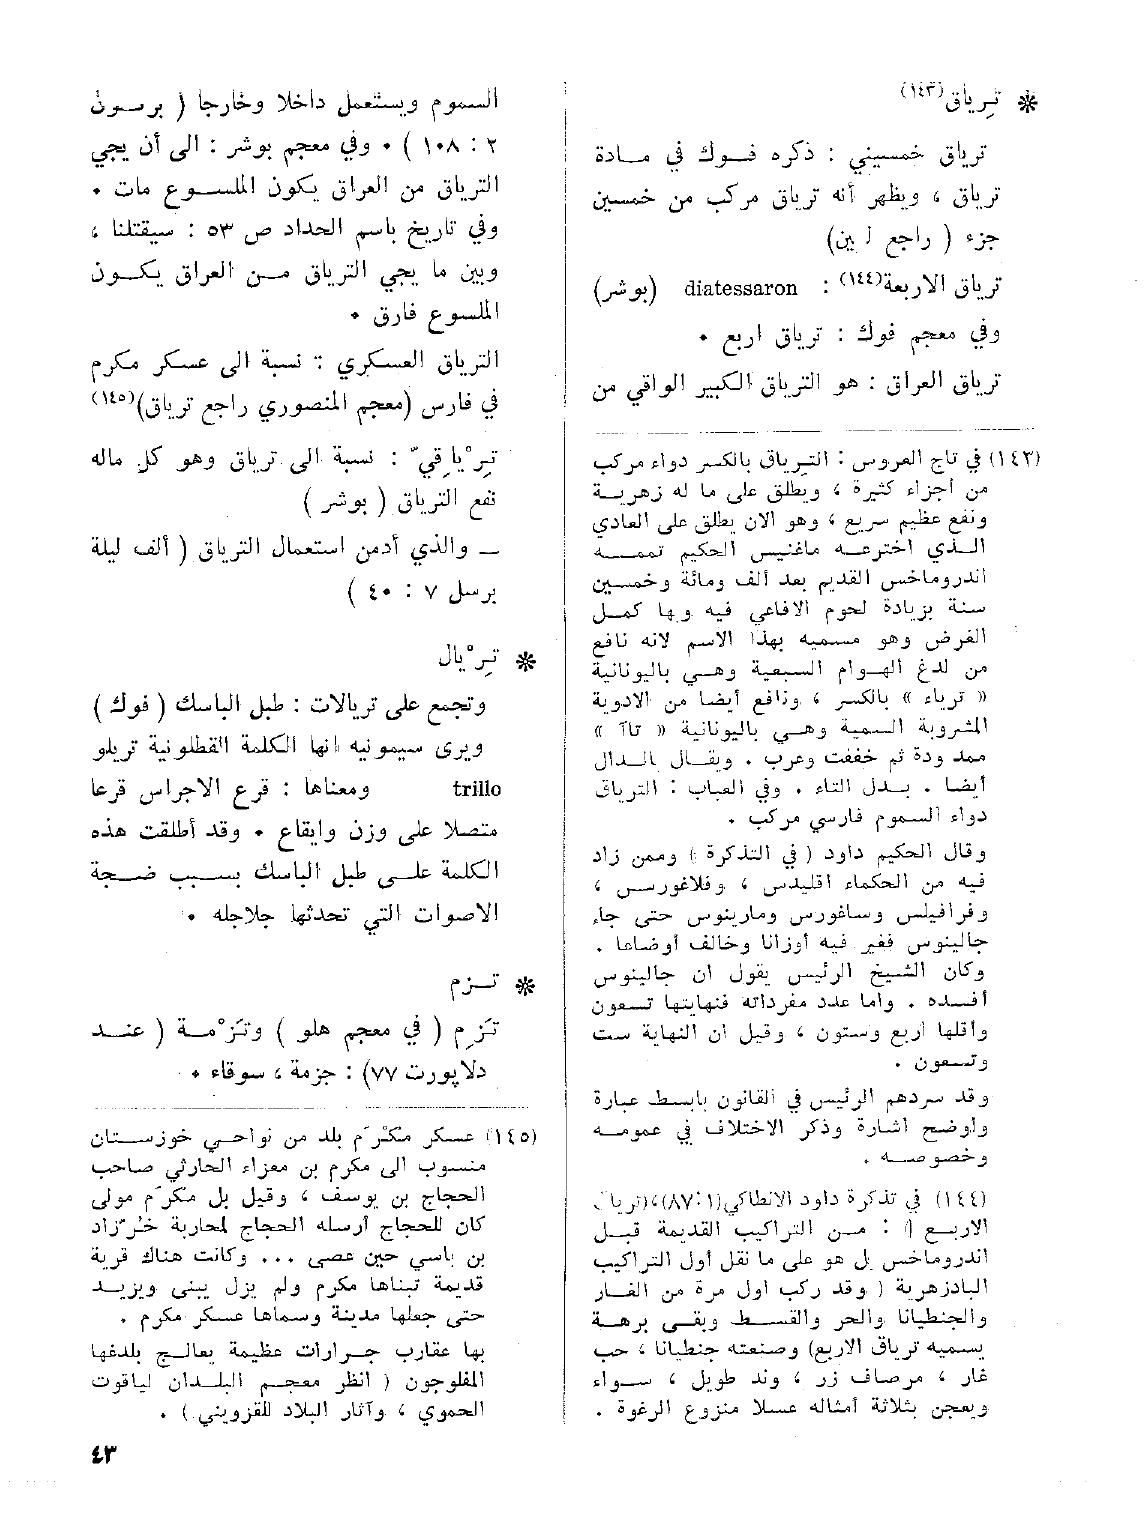 * تِرياق(١٤٣)
ترياق خمسيني : ذكره فوك في مادة
ترياق ، ويظهر أنه ترياق مركب من خمسين
جزء ( راجع لين)
ترياق الاربعة(١٤٤) : diatessaron (بوشر)
وفي معجم فوك : ترياق اربع •
ترياق العراق : هو الترياق الكبير الواقي من
(١٤٣) في تاج العروس : الترياق بالكسر دواء مركب
من أجزاء كثيرة ، ويطلق على ما له زهرية
ونفع عظيم سريع ، وهو الان يطلق على العادي
الذي اخترعه ماغنيس الحكيم تممه
اندروماخس القديم بعد ألف ومائة وخمسين
سنة بزيادة لحوم الافاعي فيه وبها كمل
الغرض وهو مسميه بهذا الاسم لانه نافع
من لدغ الهوام السبعية وهي باليونانية
« ترياء » بالكسر ، ونافع أيضا من الادوية
المشروبة السمية وهي باليونانية « تاآ »
ممدودة ثم خففت وعرب . ويقال بالدال
أيضا . بدل التاء . وفي العباب : الترياق
دواء السموم فارسي مركب .
وقال الحكيم داود ( في التذكرة ) وممن زاد
فيه من الحكماء اقليدس ، وفلاغورس ،
وفرافيلس وساغورس ومارينوس حتى جاء
جالينوس فغير فيه أوزانا وخالف أوضاعا .
وكان الشيخ الرئيس يقول ان جالينوس
أفسده . واما عدد مفرداته فنهايتها تسعون
واقلها أربع وستون ، وقيل ان النهاية ست
وتسعون .
وقد سردهم الرئيس في القانون بابسط عبارة
وأوضح اشارة وذكر الاختلاف في عمومه
وخصوصه .
(١٤٤) في تذكرة داود الانطاكي(١:٨٧)،(ترياق
الاربع ) : من التراكيب القديمة قبل
اندروماخس بل هو على ما نقل أول التراكيب
البادزهرية ( وقد ركب اول مرة من الغار
والجنطيانا والمر والقسط وبقى برهة
يسميه ترياق الاربع) وصنعته جنطيانا ، حب
غار ، مرصاف زر ، وند طويل ، سواء
ويعجن بثلاثة أمثاله عسلا منزوع الرغوة .
السموم ويستعمل داخلا وخارجا ( برسون
٢ : ١٠٨ ) • وفي معجم بوشر : الى أن يجي
الترياق من العراق يكون الملسوع مات •
وفي تاريخ باسم الحداد ص ٥٣ : سيقتلنا ،
وبين ما يجي الترياق من العراق يكون
الملسوع فارق •
الترياق العسكري : نسبة الى عسكر مكرم
في فارس (معجم المنصوري راجع ترياق)(١٤٥)
تِرْياقِيّ : نسبة الى ترياق وهو كل ماله
نفع الترياق ( بوشر )
ــ والذي أدمن استعمال الترياق ( ألف ليلة
برسل ٧ : ٤٠ )
* تِرْيال
وتجمع على تريالات : طبل الباسك ( فوك )
ويرى سيمونيه انها الكلمة القطلونية تريلو
trillo ومعناها : قرع الاجراس قرعا
متصلا على وزن وايقاع • وقد أطلقت هذه
الكلمة على طبل الباسك بسبب ضجة
الاصوات التي تحدثها جلاجله •
* تزم
تَزِم ( في معجم هلو ) وتَزْمة ( عند
دلاپورت ٧٧) : جزمة ، سوقاء •
(١٤٥) عسكر مكْرَم بلد من نواحي خوزستان
منسوب الى مكرم بن معزاء الحارثي صاحب
الحجاج بن يوسف ، وقيل بل مكرَم مولى
كان للحجاج أرسله الحجاج لمحاربة خُرّزاد
بن باسي حين عصى ... وكانت هناك قرية
قديمة تبناها مكرم ولم يزل يبنى ويزيد
حتى جعلها مدينة وسماها عسكر مكرم .
بها عقارب جرارات عظيمة يعالج بلدغها
المفلوجون ( انظر معجم البلدان لياقوت
الحموي ، وآثار البلاد للقزويني ) .
٤٣